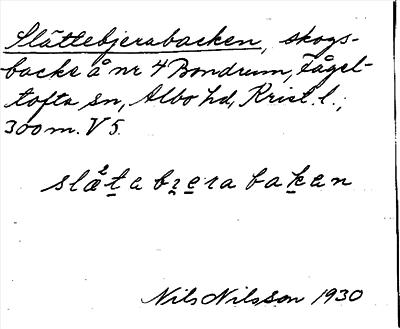 Slättebjerabacken, skogs-
backe å nr 4 Bondrum, Fågel-
tofta sn, Albo hd, Krist. l.;
300 m. V 5.
slæ²ta bꝛera bakan
Nils Nilsson 1930